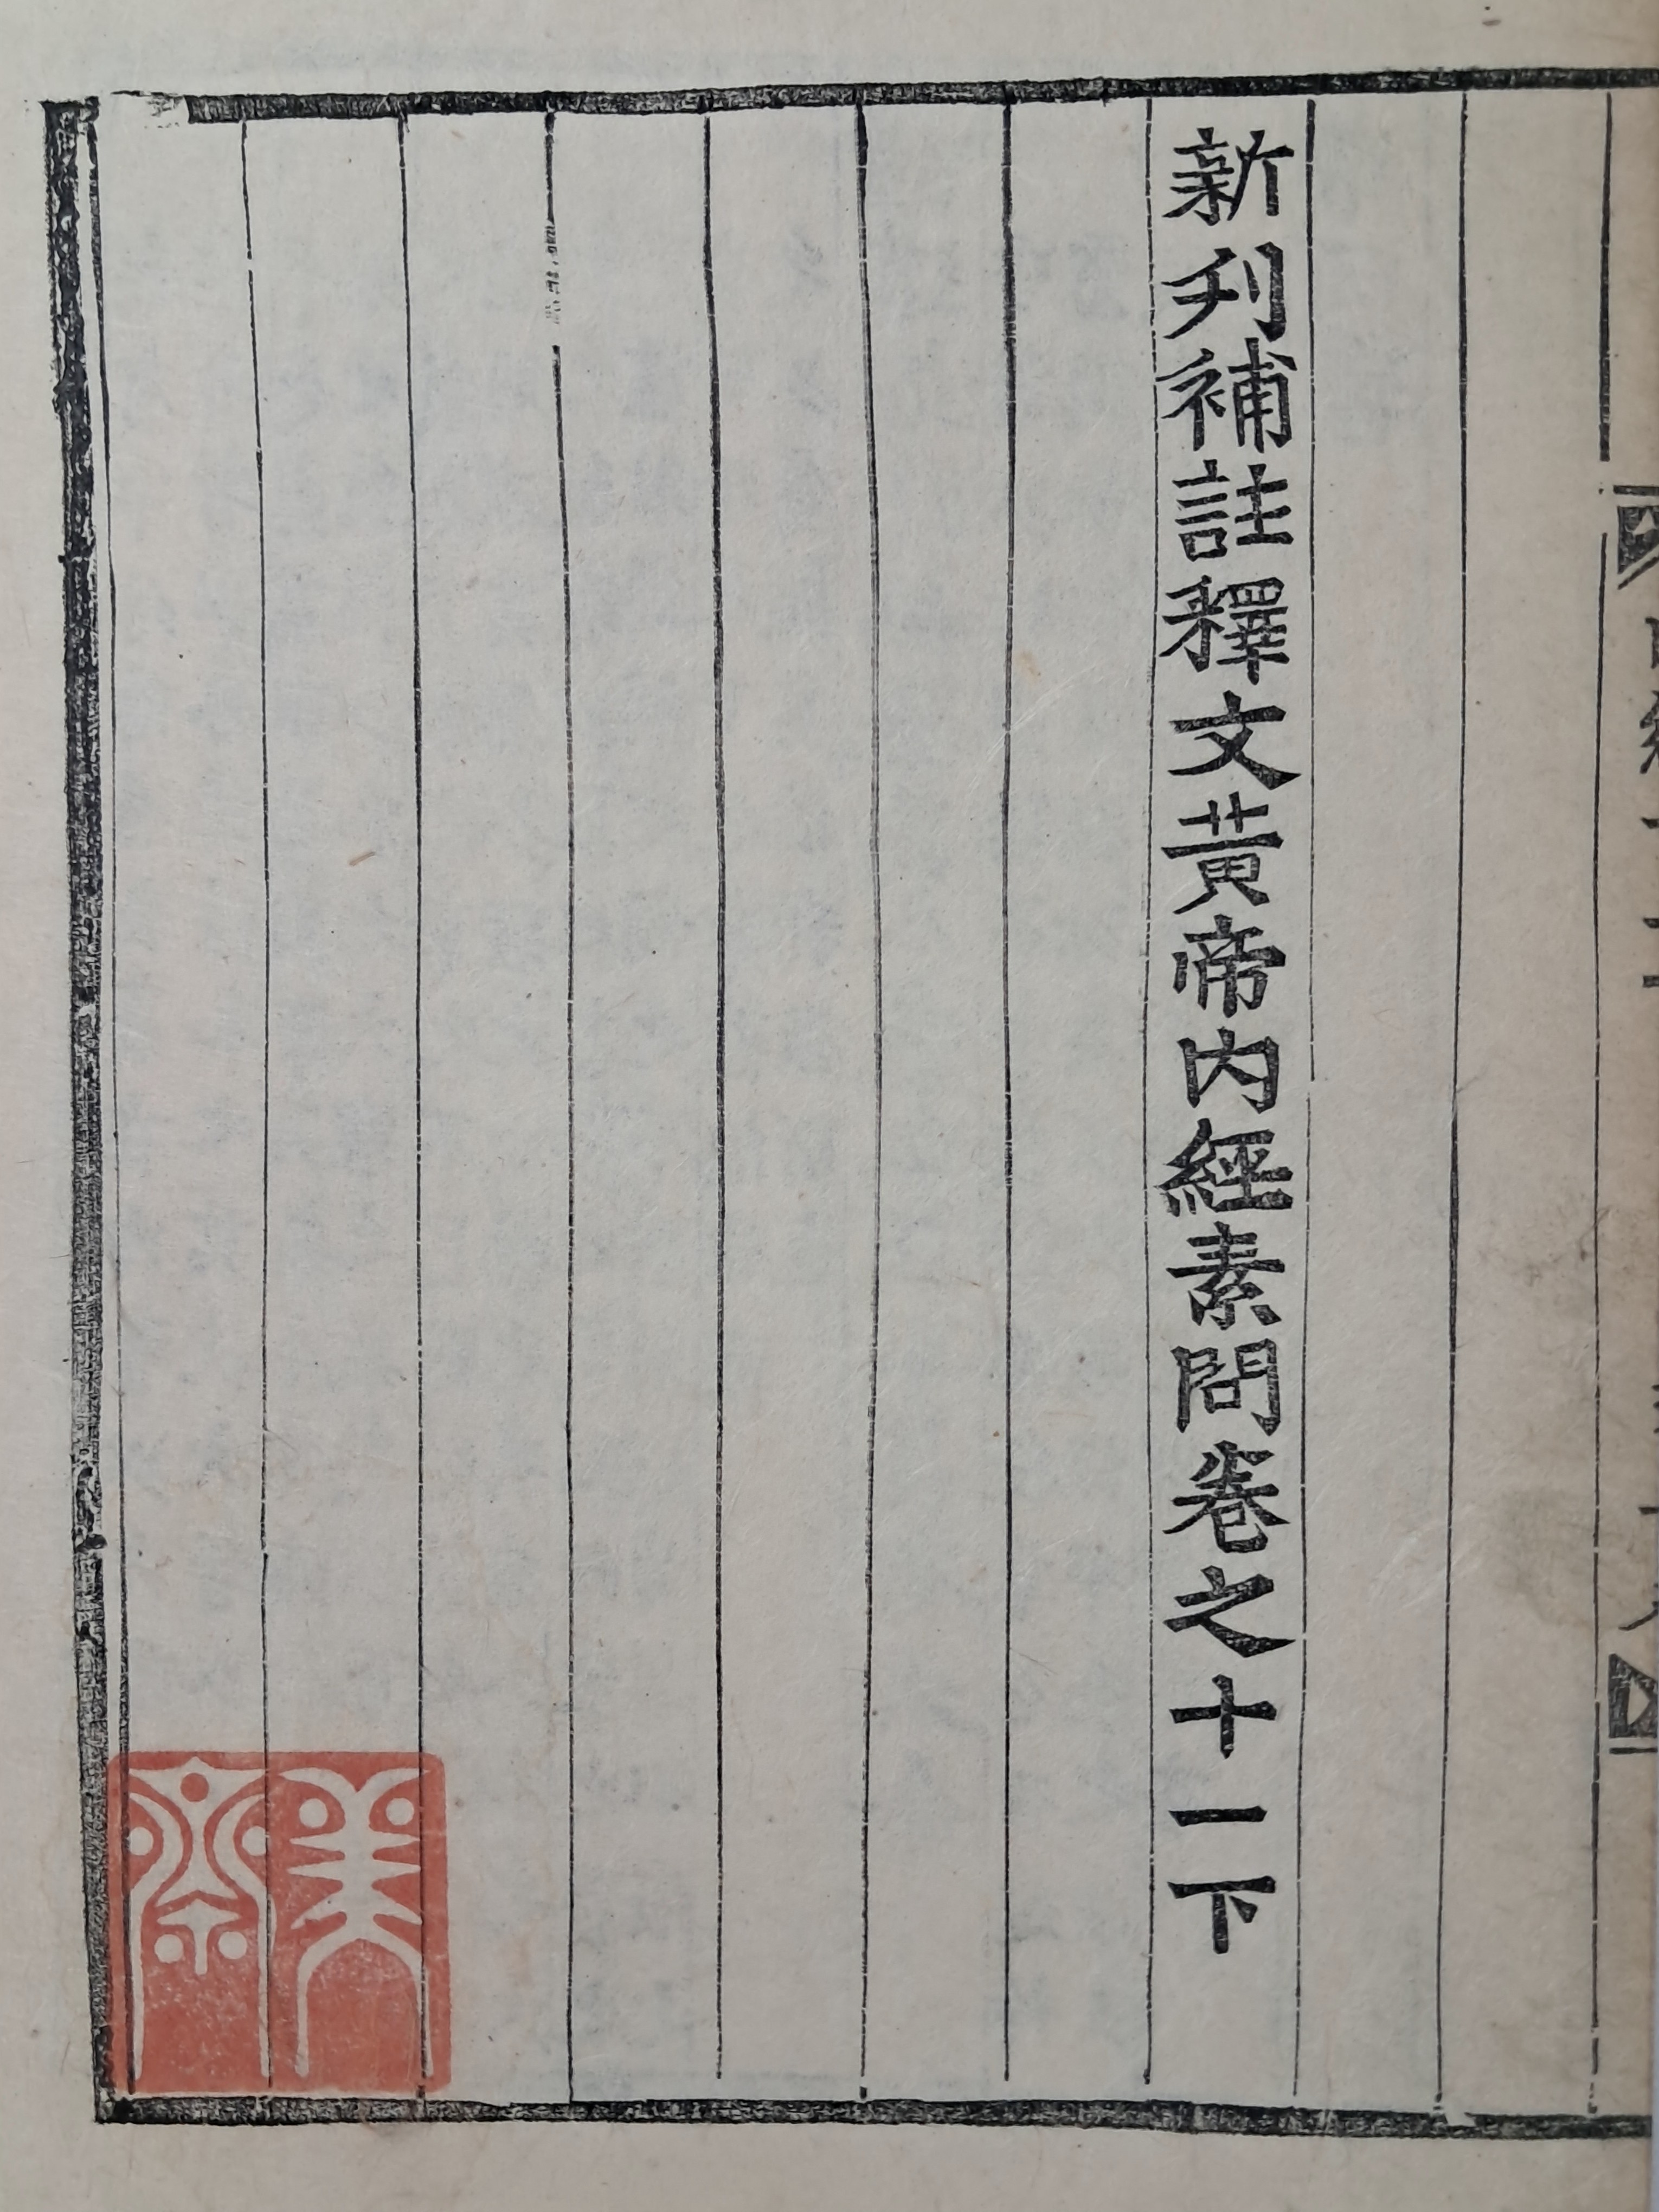 新刊補註釋文黃帝內經素問卷之十一下